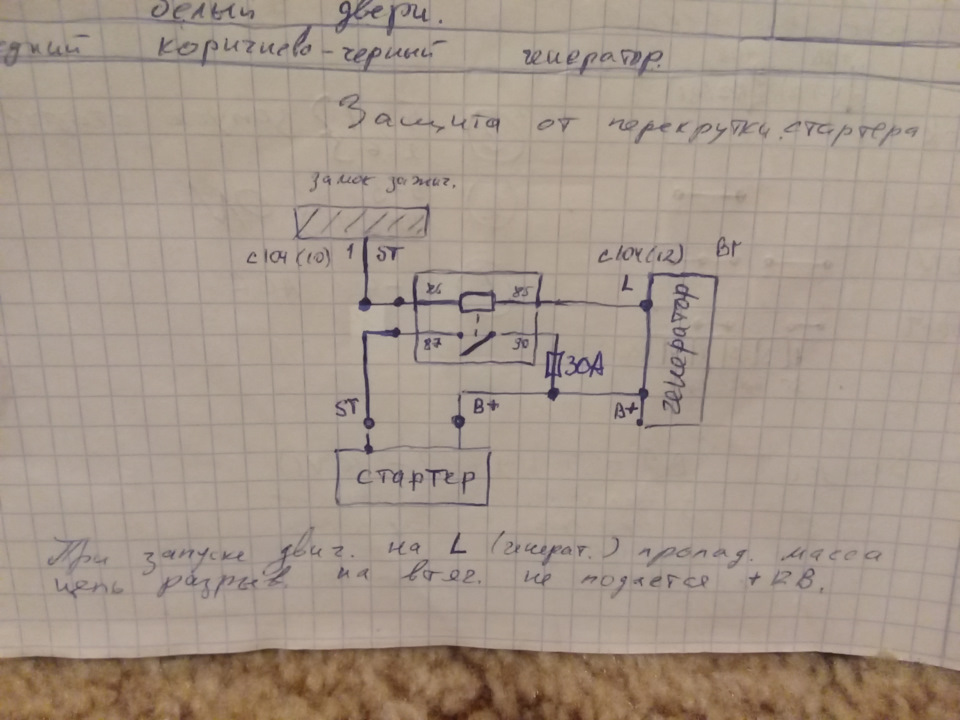 белый двери.
едний коричнево-черный генератор.
Защита от перекрутки стартера
замок зажиг.
C104 (10) 1 ST C104 (12) B+
L
86 85
87 30
30A
генератор
ST B+ B+
стартер
При запуске двиг. на L (генерат.) пропад. масса
цепь разрыв. на втяг. не подается +12В.